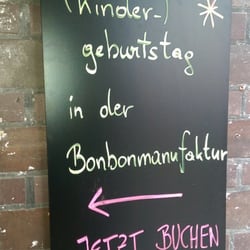 (Kinder-)
geburtstag
in der
Bonbonmanufaktur
JETZT BUCHEN